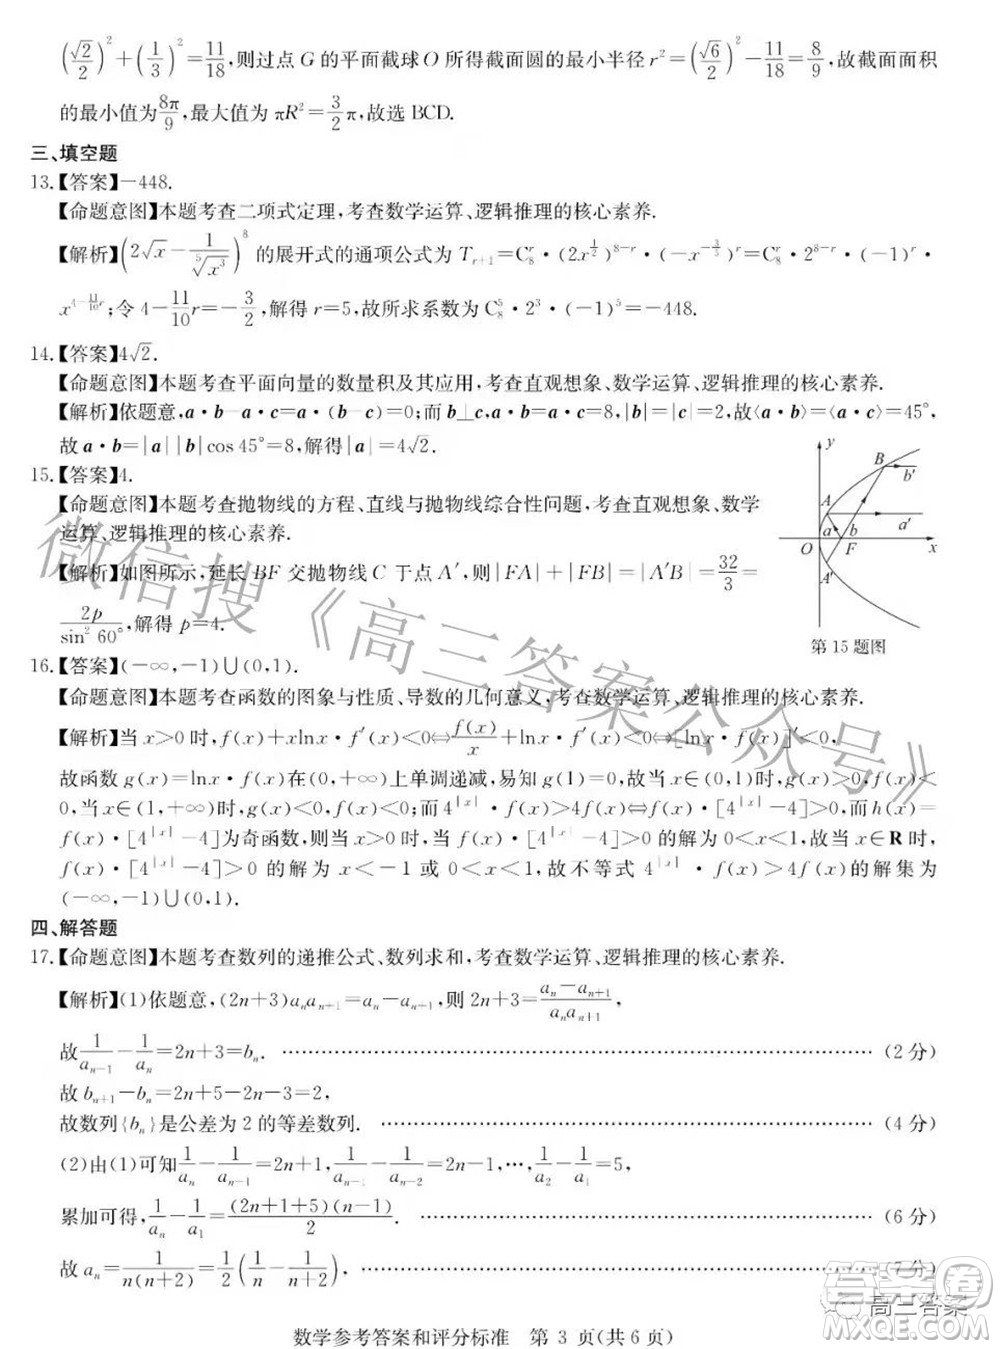 (√2/2)²+(1/3)²=11/18,则过点 G 的平面截球 O 所得截面圆的最小半径 r²=(√6/2)²−11/18=8/9,故截面面积
的最小值为8π/9,最大值为 πR²=3/2π,故选 BCD.
三、填空题
13.【答案】−448.
【命题意图】本题考查二项式定理,考查数学运算、逻辑推理的核心素养.
【解析】(2√x−1/⁵√x³)⁸ 的展开式的通项公式为 T_{r+1}=C₈^r·(2x^{1/2})^{8−r}·(−x^{−3/5})^r=C₈^r·(2)^{8−r}·(−1)^r·
x^{4−11/10r};令 4−11/10r=−3/2,解得 r=5,故所求系数为 C₈⁵·2³·(−1)⁵=−448.
14.【答案】4√2.
【命题意图】本题考查平面向量的数量积及其应用,考查直观想象、数学运算、逻辑推理的核心素养.
【解析】依题意,a·b−a·c=a·(b−c)=0;而 b⊥c,a·b=a·c=8,|b|=|c|=2,故⟨a·b⟩=⟨a·c⟩=45°,
故 a·b=|a||b|cos 45°=8,解得|a|=4√2.
15.【答案】4.
【命题意图】本题考查抛物线的方程、直线与抛物线综合性问题,考查直观想象、数学
运算、逻辑推理的核心素养.
【解析】如图所示,延长 BF 交抛物线 C 于点 A′,则|FA|+|FB|=|A′B|=32/3=
2p/sin² 60°,解得 p=4.
y
B
b′
A
a′
a
b
O
F
x
A′
第 15 题图
16.【答案】(−∞,−1)∪(0,1).
【命题意图】本题考查函数的图象与性质、导数的几何意义,考查数学运算、逻辑推理的核心素养.
【解析】当 x>0 时,f(x)+xlnx·f′(x)<0⇔f(x)/x+lnx·f′(x)<0⇔[lnx·f(x)]′<0,
故函数 g(x)=lnx·f(x)在(0,+∞)上单调递减,易知 g(1)=0,故当 x∈(0,1)时,g(x)>0,f(x)<
0,当 x∈(1,+∞)时,g(x)<0,f(x)<0;而4^{|x|}·f(x)>4f(x)⇔f(x)·[4^{|x|}−4]>0,而 h(x)=
f(x)·[4^{|x|}−4]为奇函数,则当 x>0 时,f(x)·[4^{|x|}−4]>0 的解为 0<x<1,故当 x∈R 时,
f(x)·[4^{|x|}−4]>0 的解为 x<−1 或 0<x<1,故不等式 4^{|x|}·f(x)>4f(x)的解集为
(−∞,−1)∪(0,1).
四、解答题
17.【命题意图】本题考查数列的递推公式、数列求和,考查数学运算、逻辑推理的核心素养.
【解析】(1)依题意,(2n+3)a_n a_{n+1}=a_n−a_{n+1},则 2n+3=(a_n−a_{n+1})/(a_n a_{n+1}),
故1/a_{n−1}−1/a_n=2n+3=b_n. ……………(2 分)
故 b_{n+1}−b_n=2n+5−2n−3=2,
故数列{b_n}是公差为 2 的等差数列. ……………(4 分)
(2)由(1)可知1/a_n−1/a_{n−1}=2n+1,1/a_{n−1}−1/a_{n−2}=2n−1,…,1/a_2−1/a_1=5,
累加可得,1/a_n−1/a_1=(2n+1+5)(n−1)/2. ……………(6 分)
故 a_n=1/n(n+2)=1/2(1/n−1/(n+2)). ……………(7 分)
数学参考答案和评分标准 第 3 页(共 6 页)
微信搜《高三答案公众号》
高三答案
答案圈
MXQE.COM